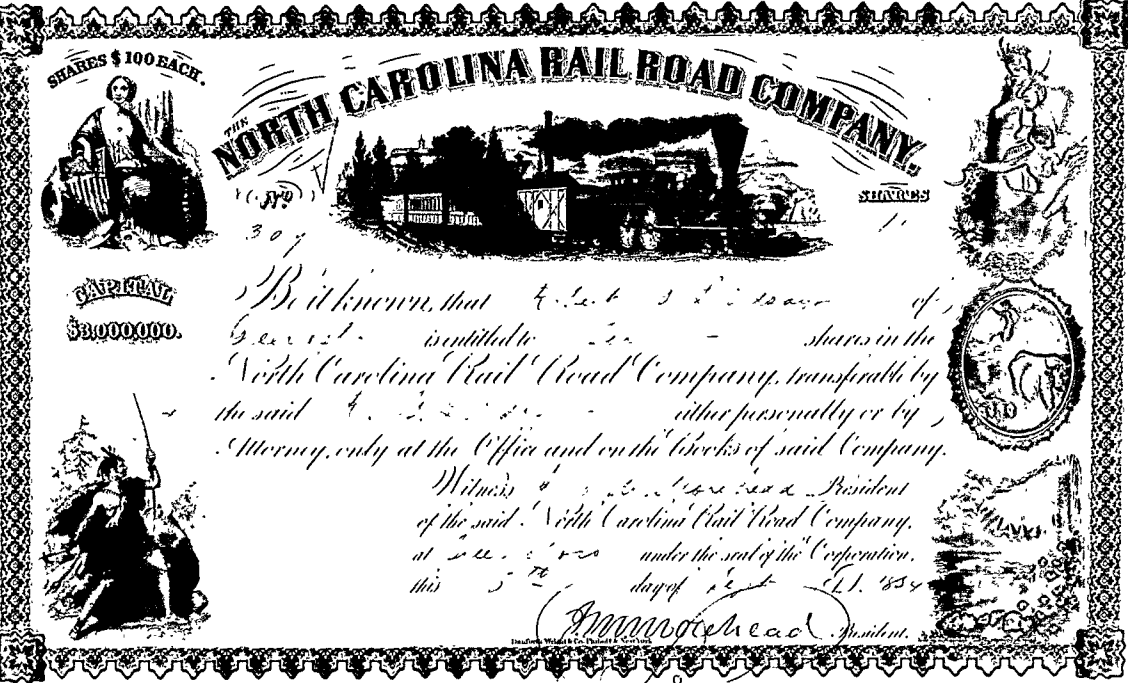 SHARES $100 EACH.
THE
NORTH CAROLINA RAIL ROAD COMPANY.
No
SHARES
307
1
CAPITAL
$3.000.000.
Be it known, that of
is entitled to shares in the
North Carolina Rail Road Company, transferable by
the said either personally or by
Attorney, only at the Office and on the Books of said Company.
Witness Morehead President
of the said North Carolina Rail Road Company.
at under the seal of the Corporation,
this 5th day of Sept A.D. 1854
J M Morehead President.
Danforth, Wright & Co. New York